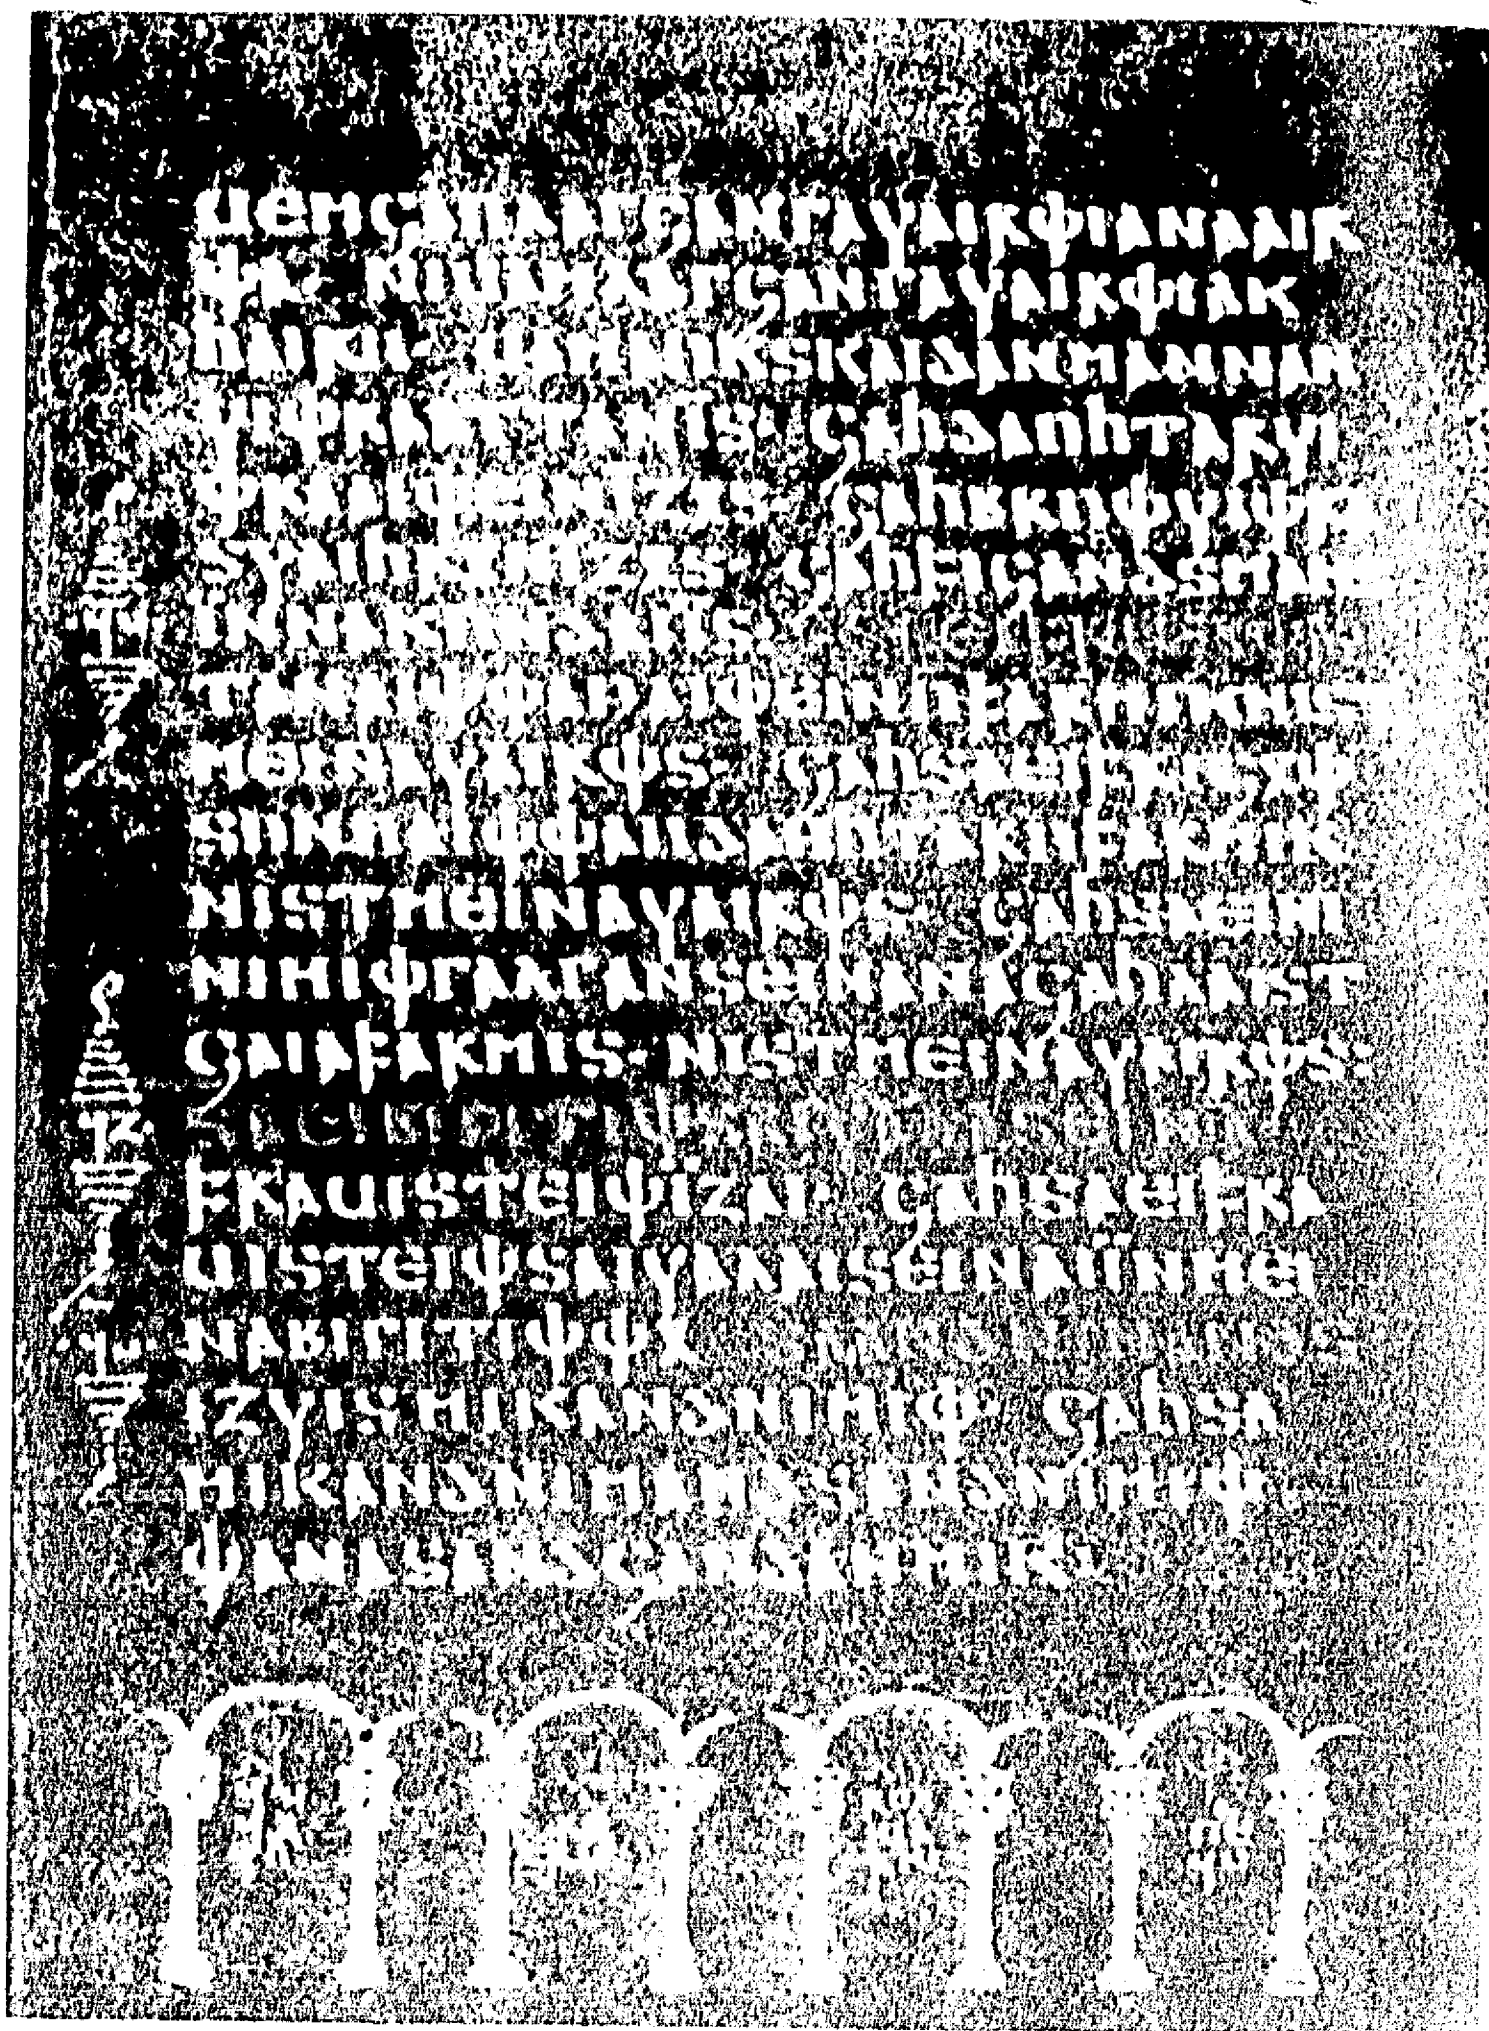 𐌵𐌴𐌼𐌾𐌰𐌿𐌻𐌰𐌲𐌾𐌰𐌽𐌲𐌰𐍅𐌰𐌹𐍂𐌸𐌹𐌰𐌽𐌰𐌰𐌹𐍂
𐌸𐌰· 𐌽𐌹𐌵𐌰𐌼𐌻𐌰𐌲𐌾𐌰𐌽𐌲𐌰𐍅𐌰𐌹𐍂𐌸𐌹𐌰𐌺
𐌷𐌰𐌹𐍂𐌿· 𐌵𐌰𐌼𐌰𐌿𐌺𐍃𐌺𐌰𐌹𐌳𐌰𐌽𐌼𐌰𐌽𐌽𐌰𐌽
𐍅𐌹𐌸𐍂𐌰𐌰𐍄𐍄𐌰𐌽𐌹𐍃· 𐌾𐌰𐌷𐌳𐌰𐌿𐌷𐍄𐌰𐍂𐍅𐌹
𐌸𐍂𐌰𐌰𐌹𐌸𐌴𐌹𐌽𐌹𐌶𐍉𐍃· 𐌾𐌰𐌷𐌱𐍂𐌿𐌸𐍅𐌹𐌸𐍂𐌰
𐍃𐍅𐌰𐌹𐌷𐍂𐍉𐌽𐌹𐌶𐍉𐍃· 𐌾𐌰𐌷𐍆𐌹𐌾𐌰𐌽𐌳𐍃𐌼𐌰𐌽𐍃
𐌹𐌽𐌽𐌰𐌺𐌿𐌽𐌳𐌰𐌹𐌹𐍃· 𐍃𐌰𐌴𐌹𐍆𐍂𐌹𐌾𐍉𐌸𐌰𐍄
𐍄𐌰𐌽𐌰𐌹𐌸𐌸𐌰𐌿𐌰𐌹𐌸𐌴𐌹𐌽𐌿𐍆𐌰𐍂𐌼𐌹𐌺𐌽𐌹𐍃𐍄
𐌼𐌴𐌹𐌽𐌰𐍅𐌰𐌹𐍂𐌸𐍃· 𐌾𐌰𐌷𐍃𐌰𐌴𐌹𐍆𐍂𐌹𐌾𐍉𐌸
𐍃𐌿𐌽𐌿𐌰𐌹𐌸𐌸𐌰𐌿𐌳𐌰𐌿𐌷𐍄𐌰𐍂𐌿𐍆𐌰𐍂𐌼𐌹𐌺
𐌽𐌹𐍃𐍄𐌼𐌴𐌹𐌽𐌰𐍅𐌰𐌹𐍂𐌸𐍃· 𐌾𐌰𐌷𐍃𐌰𐌴𐌹𐌽𐌹
𐌽𐌹𐌼𐌹𐌸𐌲𐌰𐌻𐌲𐌰𐌽𐍃𐌴𐌹𐌽𐌰𐌽𐌰𐌾𐌰𐌷𐌻𐌰𐌹𐍃𐍄
𐌾𐌰𐌹𐌰𐍆𐌰𐍂𐌼𐌹𐍃· 𐌽𐌹𐍃𐍄𐌼𐌴𐌹𐌽𐌰𐍅𐌰𐌹𐍂𐌸𐍃:
𐍃𐌰𐌴𐌹𐌱𐌹𐌲𐌹𐍄𐌹𐌸𐍃𐌰𐌹𐍅𐌰𐌻𐌰𐍃𐌴𐌹𐌽𐌰
𐍆𐍂𐌰𐌵𐌹𐍃𐍄𐌴𐌹𐌸𐌹̈𐌶𐌰𐌹· 𐌾𐌰𐌷𐍃𐌰𐌴𐌹𐍆𐍂𐌰
𐌵𐌹𐍃𐍄𐌴𐌹𐌸𐍃𐌰𐌹𐍅𐌰𐌻𐌰𐌹𐍃𐌴𐌹𐌽𐌰𐌹𐌹̈𐌽𐌼𐌴𐌹
𐌽𐌰𐌱𐌹𐌲𐌹𐍄𐌹𐌸𐌸𐍉 𐍃𐌰𐌰𐌽𐌳𐌽𐌹𐌼𐌰𐌽𐌳𐍃
𐌹𐌶𐍅𐌹𐍃𐌼𐌹𐌺𐌰𐌽𐌳𐌽𐌹𐌼𐌹𐌸· 𐌾𐌰𐌷𐍃𐌰
𐌼𐌹𐌺𐌰𐌽𐌳𐌽𐌹𐌼𐌰𐌽𐌳𐍃𐌰𐌽𐌳𐌽𐌹𐌼𐌹𐌸
𐌸𐌰𐌽𐌰𐍃𐌰𐌽𐌳𐌾𐌰𐌽𐌳𐌰𐌽𐌼𐌹𐌺·